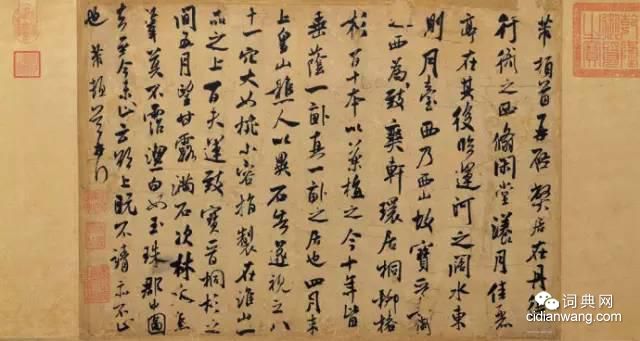 芾頓首再啓弊居在丹徒
行衙之西翛閑堂漾月佳麗
亭在其後臨運河之闊水東
則月臺西乃西山故寶晉齋
之西為致爽軒環居桐柳椿
杉百十本以藥植之今十年皆
垂蔭一畝真一畝之居也四月末
上皇山樵人以異石告遂視之八
十一穴大如椀小容指製在淮山一
品之上百夫運致寶晉桐杉之
間五月望甘露滿石次林木焦
葦莫不霑潔白如玉珠郡中圖
去至今未止云欲上既不請亦不止
也 芾頓首再啓
词典网
cidianwang.com